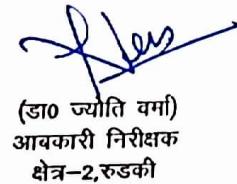 (डा0 ज्योति वर्मा)
आबकारी निरीक्षक
क्षेत्र-2,रुडकी